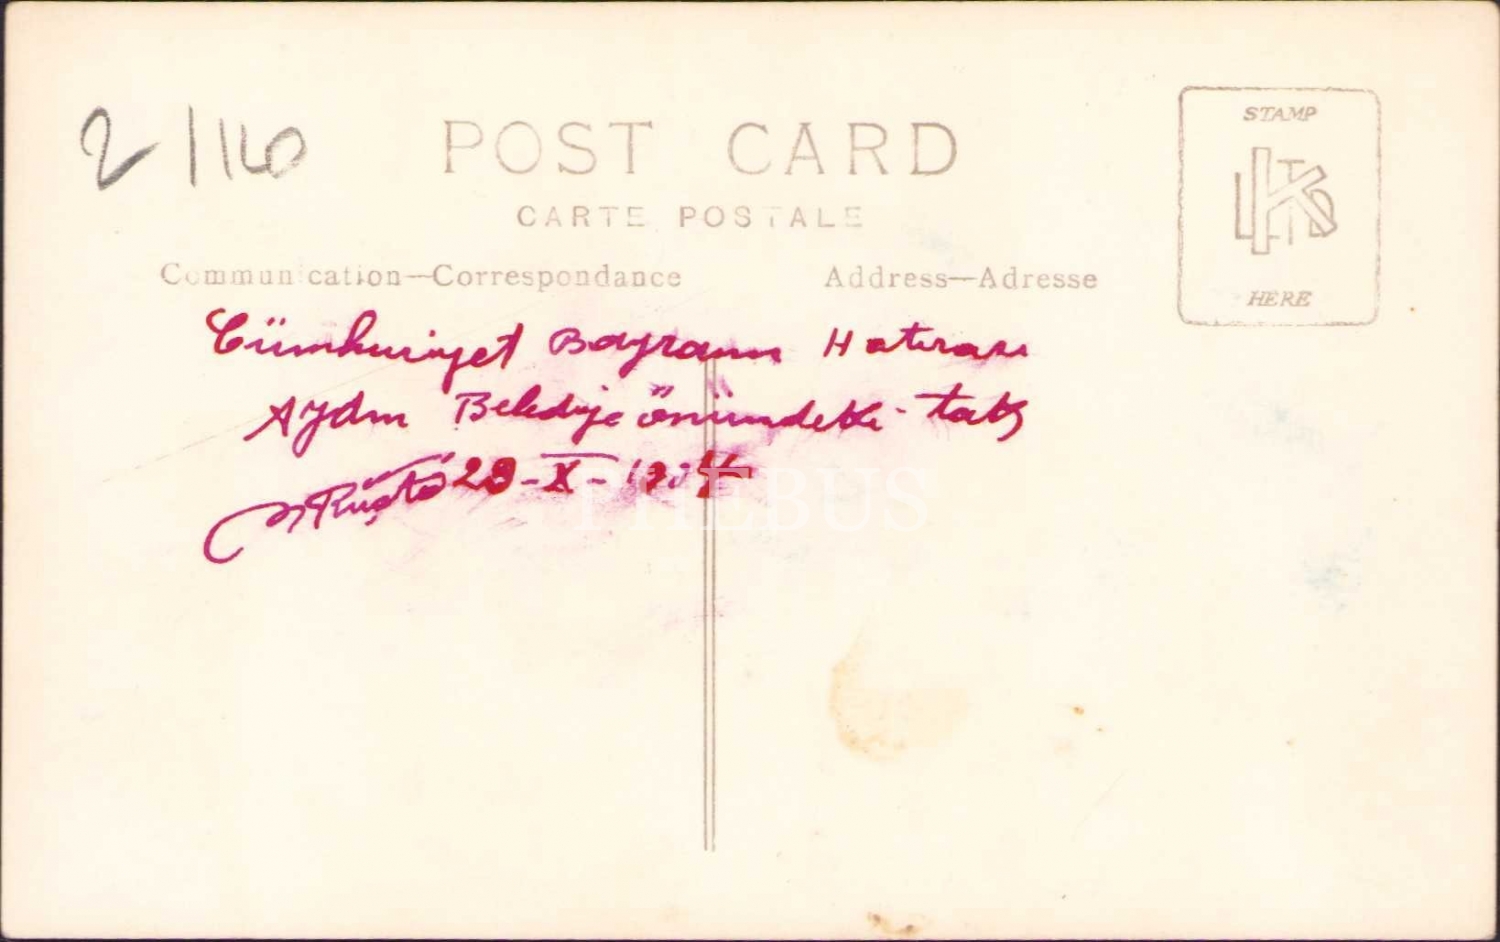 2/140
POST CARD
CARTE POSTALE
STAMP
HERE
Communication—Correspondance
Address—Adresse
Cümhuriyet Bayramı Hatırası
Aydın Belediye önündeki tak
Rüştü
PHEBUS